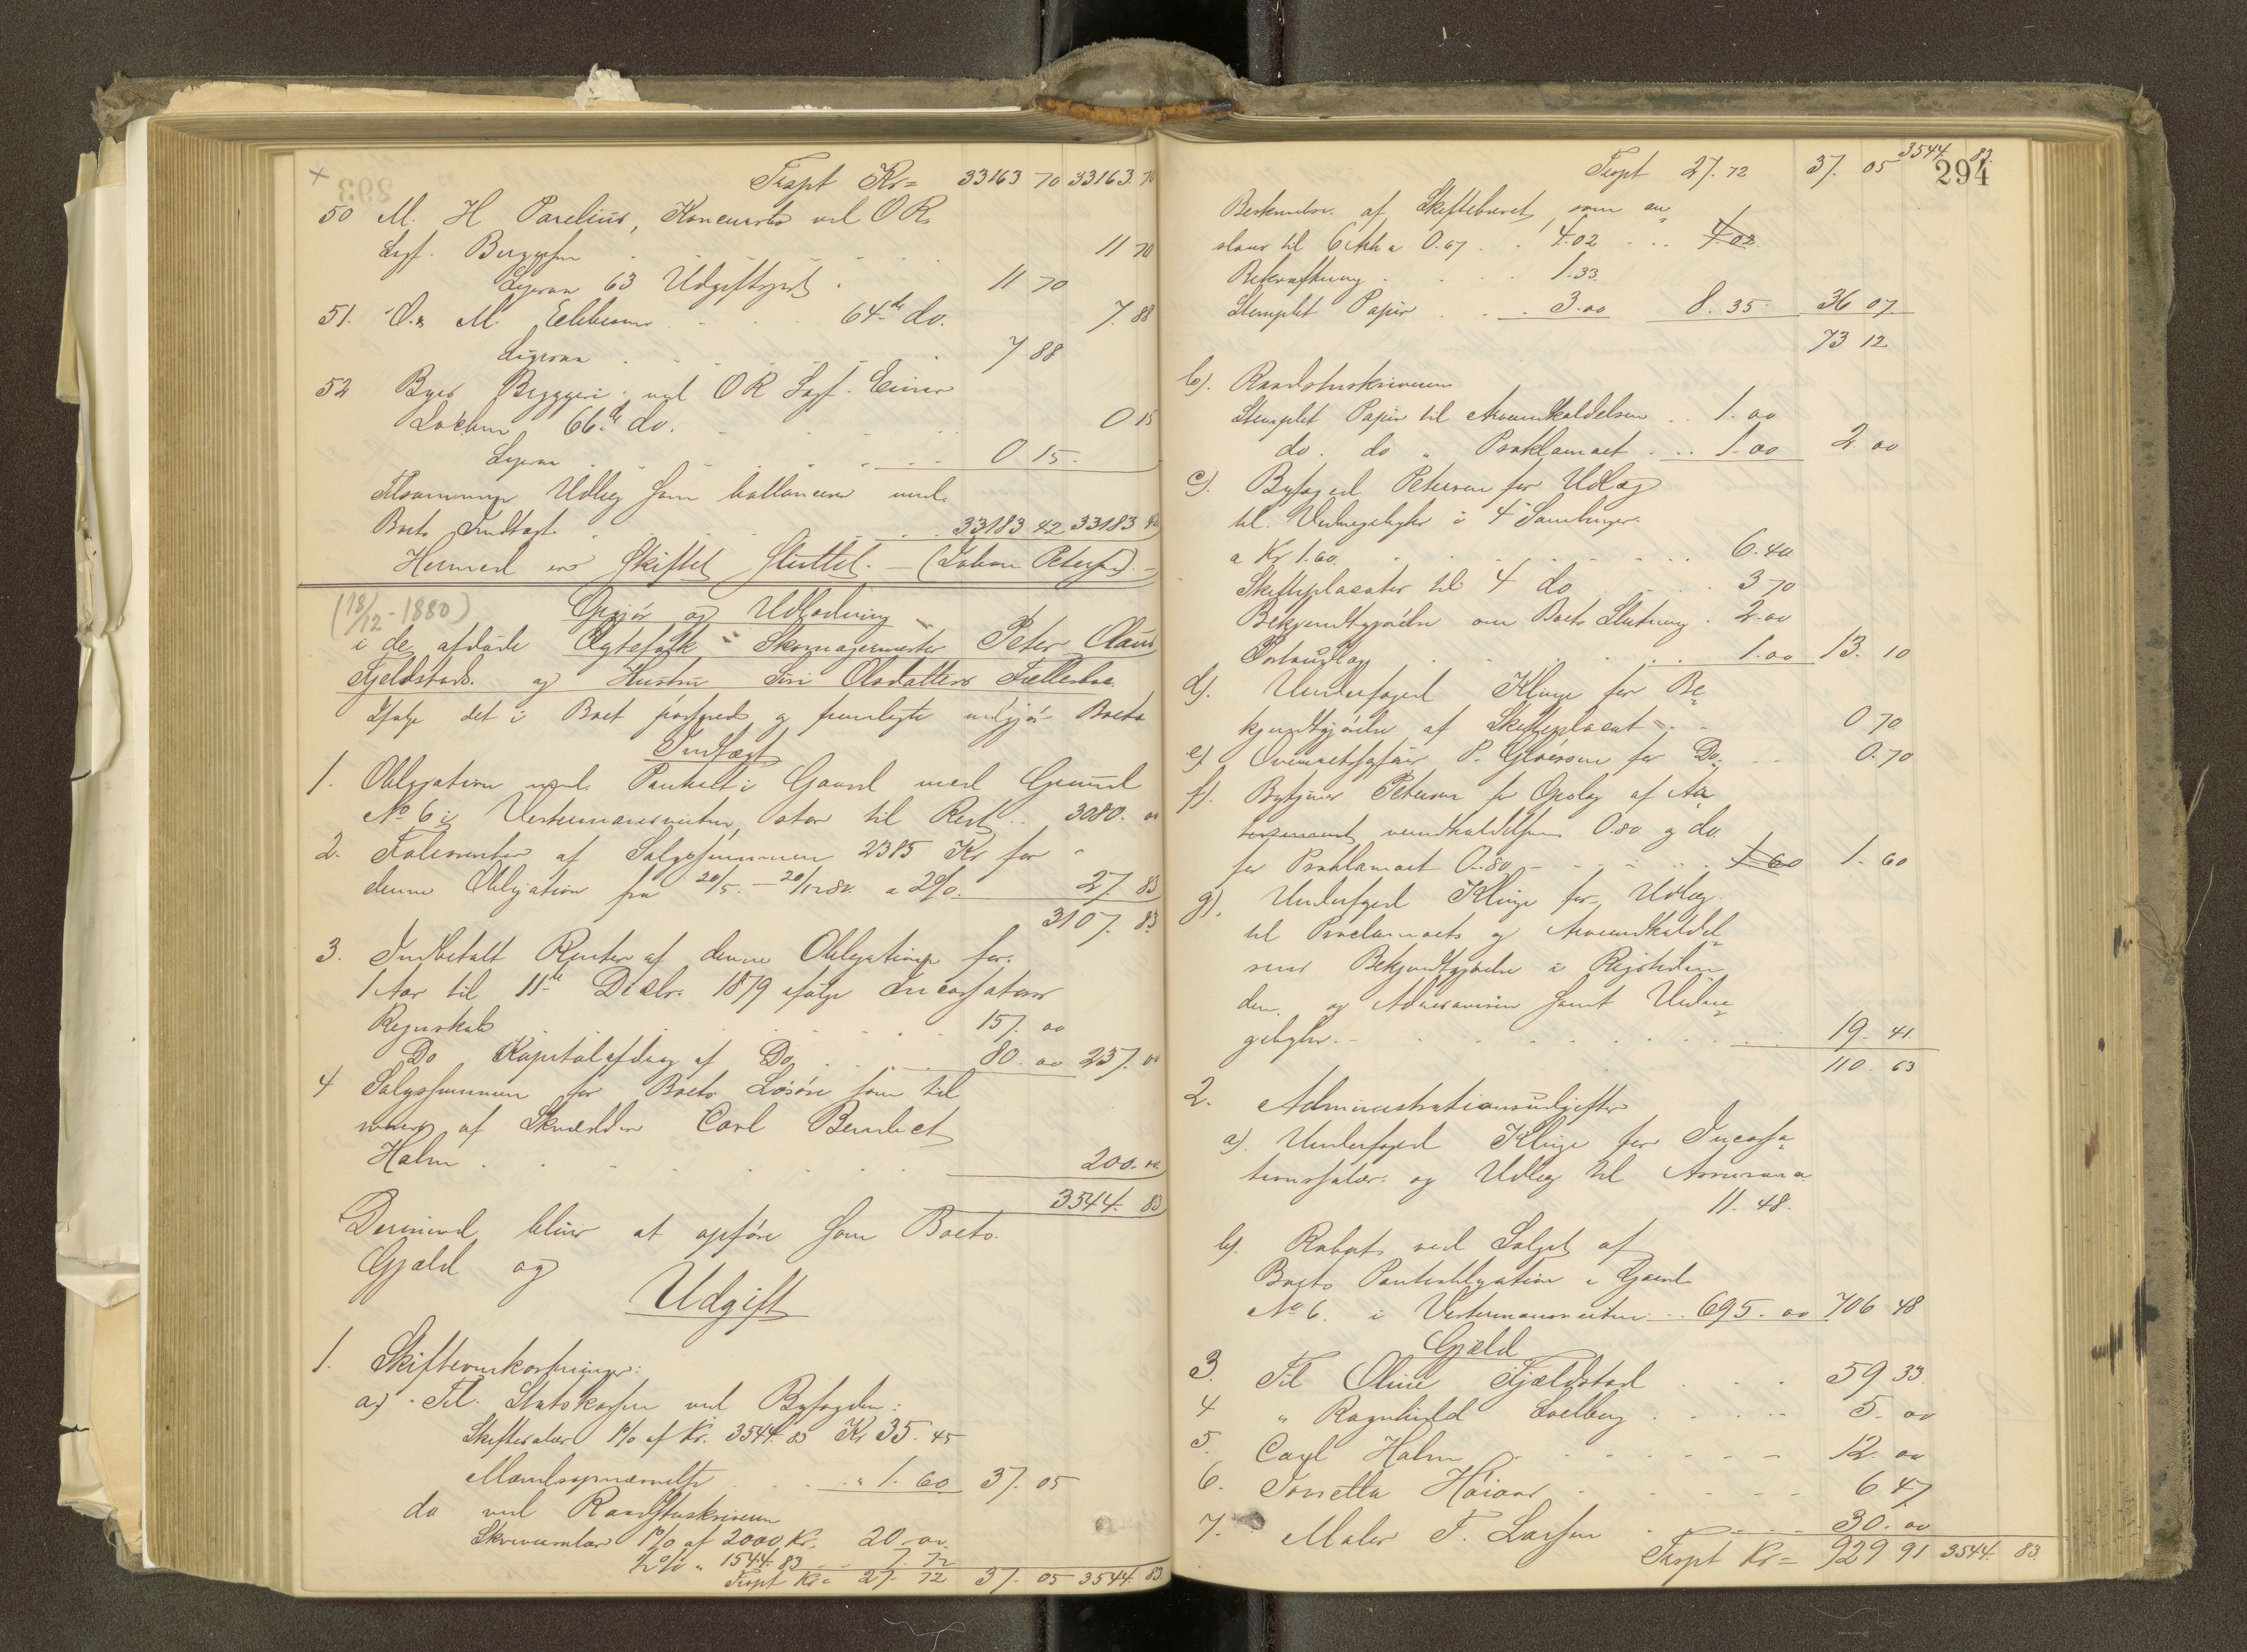 Trspt Kr= 33163 70 33163. 70
50 M. H Parelius, Koncursbo ved O R.
Sagf. Bugge 11 70
Ligesaa 63 Udgiftspost 11 70
51. O. M. Ebbesen 64de do. 7. 88
Ligesaa 7 88
52 Byes Bryggeri ved O R Sagf. Einar
66de do. 0 15
Ligesaa 0 15.
Tilsammen Udlæg som ballancerer med
Boets Indtægt 33183 42 33183 42
Hermed er Skiftet Sluttet. — (Johan Petersen). —
(18/12 - 1880)
Opgjør og Udlodning
i de afdøde Ægtefolk Skomagermester Peter Claus
Fjeldstads og Hustru Siri Olsdatters Fællesbo.
Ifølge det i Boet passerede og fremlagte udgjør Boets
Indtægt
1. Obligation med Pantret i Gaard med Grund
No 6 i Vestermannveiten, stor til Rest 3080. 00
2. Folierenter af Salgssummen 2385 Kr for
denne Obligation fra 20/5. - 20/12 80. a 2%. 27. 83
3107. 83
3. Indbetalt Renter af denne Obligation for
1 Aar til 11te Decbr. 1879 ifølge Incassators
Regnskab 157. 00
Do Kapitalafdrag af Do 80. 00 237. 00
4 Salgssummen for Boets Løsøre som til
af Skrædder Carl Benedict
Holm 200. 00
3544. 83
Derimod bliver at opføre som Boets
Gjæld og
Udgift
1. Skifteomkostninger:
a) Til Statskassen ved Byfogden:
Skiftesalær 1% af Kr. 3544. 83 Kr 35. 45
Mændsopnævnelse " 1. 60 37. 05
do ved Raadstueskriveren
Skriversalær 1% af 2000 Kr. 20 00.
½% " 1544. 83 7. 72
Trspt Kr= 27. 72 37. 05 3544. 83.
294
Trspt 27. 72 37. 05 3544. 83.
Beskrivelse af Skiftebrevet som an=
slaaes til 6 Ark a 0.67 4.02 4.02
Bekræftning 1.33
Stemplet Papir 3.00 8. 35. 36 07.
73 12
b). Raadstueskriveren
Stemplet Papir til Arveindkaldelsen 1. 00
do. do " Proklamaet 1. 00 2. 00
c). Byfoged Petersen for Udlæg
til Vidnegebyhr i 4 Samlinger
a Kr 1.60. 6. 40
Skifteplacater til 4 do 3 70
Bekjendtgjørelse om Boets Slutning 2. 00
Portoudlæg 1. 00 13. 10
d). Underfoged Klinge for Be=
kjendtgjørelse af Skifteplacat 0 70.
e) P. for Do. 0. 70
f). Petersen for Oplæg af Ar
veindkaldelsen 0.80 og do
for Proklamaet 0.80 1 60 1. 60
g). Underfoged Klinge for Udlæg
til Proclamaets og Arveindkaldel=
sens Bekjendtgjørelse i Rigstiden
den og Adresavisen samt Vidne=
gebyhr. 19. 41.
110. 63
2. Administrationsudgifter
a). Underfoged Klinge for Incassa=
tionssalær og Udlæg til Assurance
11. 48.
b). Rabat ved Salget af
Boets Pantobligation i Gaard
No 6. i Vestermannveiten 695. 00 706 48
Gjæld
3. Til Oline Fjældstad 59 33.
4 " Ragnhild Solberg 5. 00
5. Carl Holm 12. 00
6. Høiaas 6 47
7. Maler T. Larsen 30. 00
Trspt Kr= 929 91 3544. 83.